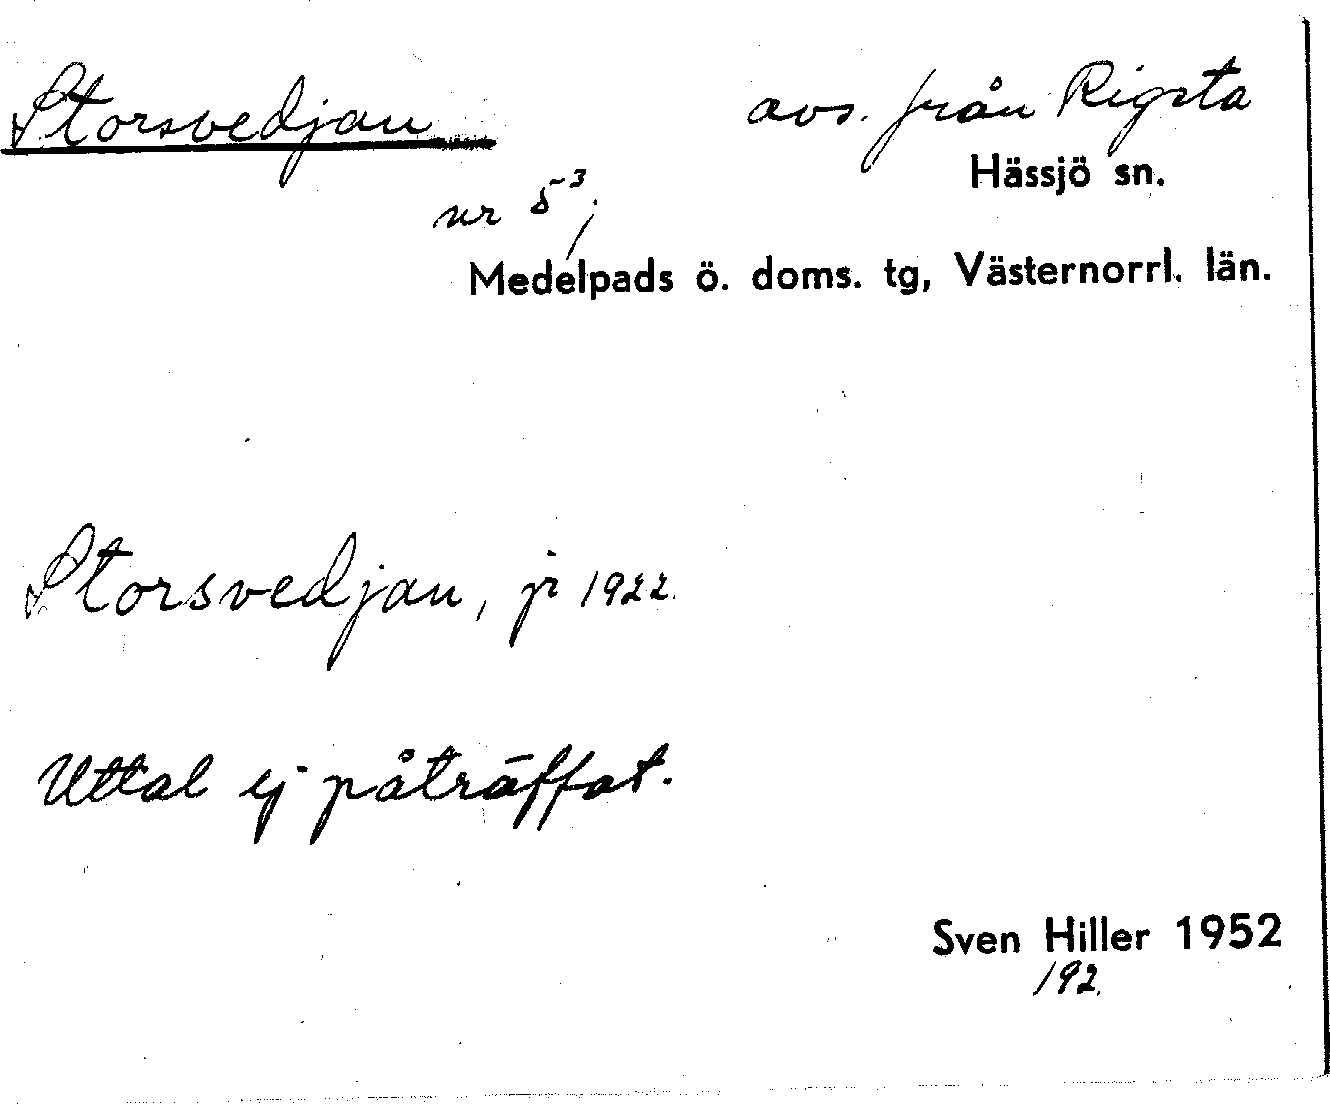 Storsvedjan avs. från Rigsta
Hässjö sn.
nr 5³,
Medelpads ö. doms. tg, Västernorrl. län.
Storsvedjan, jr 1922.
Uttal ej påträffat.
Sven Hiller 1952
192.